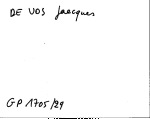 DE VOS Jacques
GP 1705/29